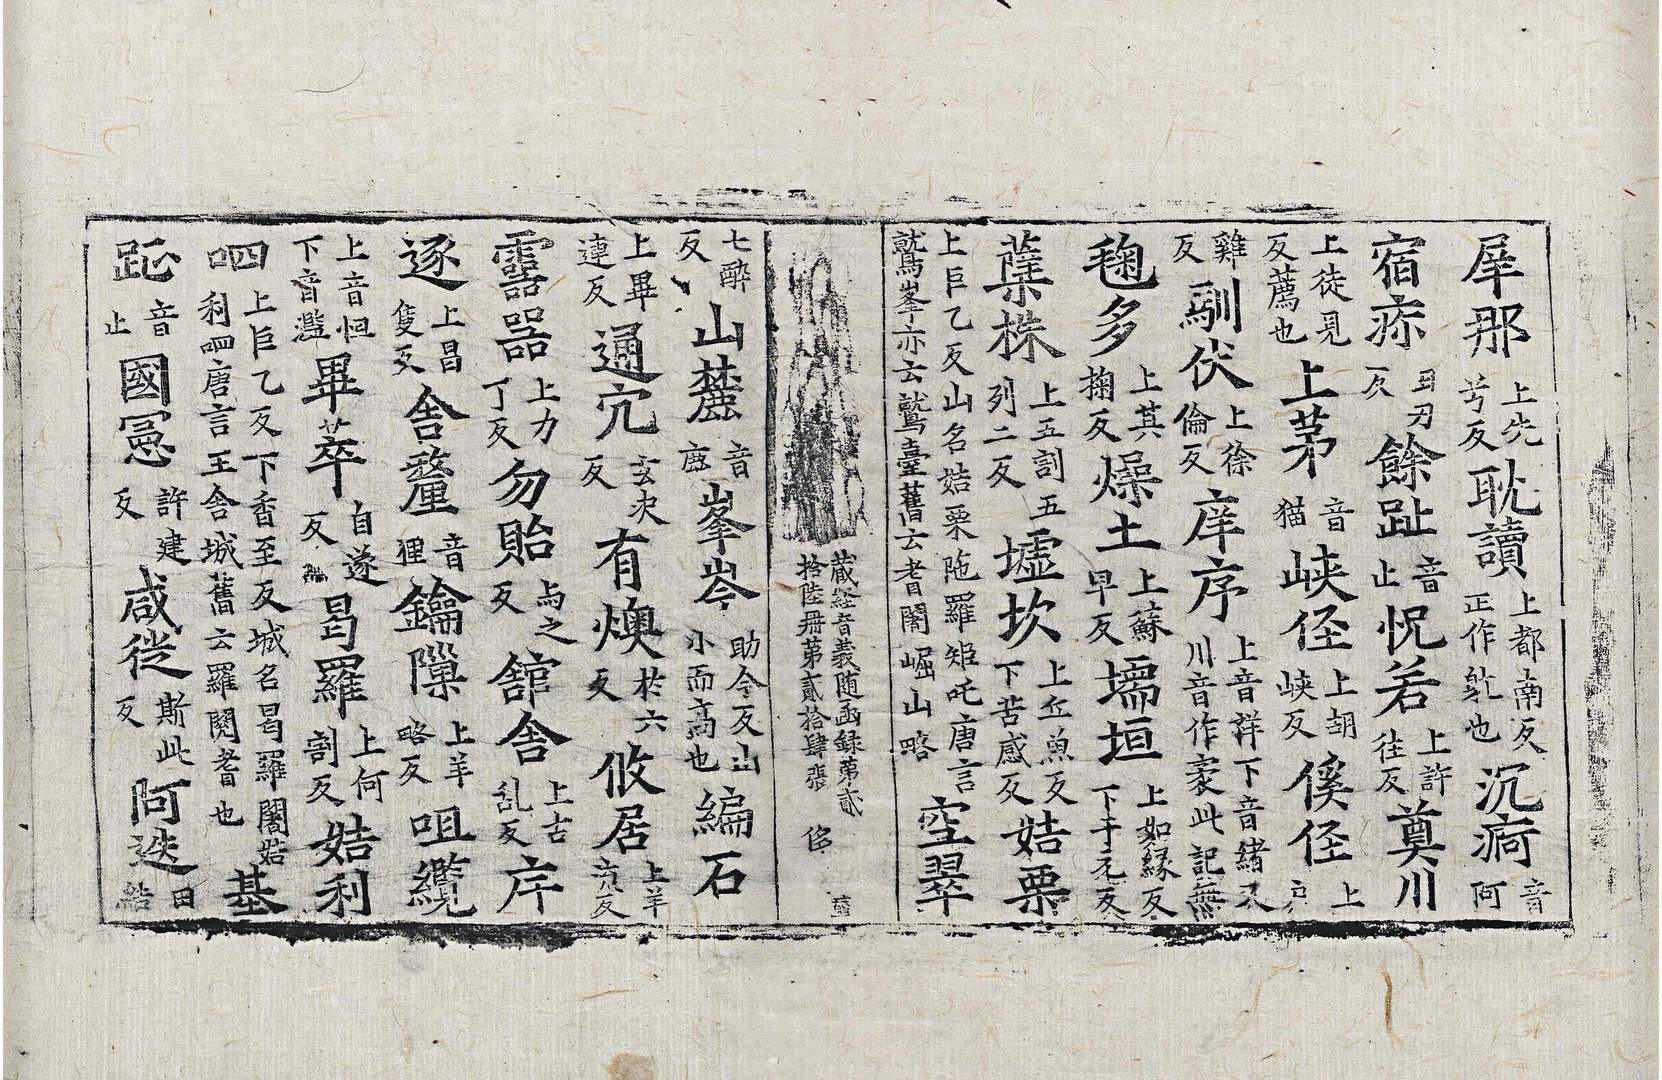 屖那上先兮反耽讀上都南反正作躭也沉痾音阿
宿疹丑刃反餘趾音止怳若上許往反奠川
上徒見反薦也上茅音猫峽径上胡峽反傒径上
雞反馴伏上徐倫反庠序上音詳下音緒又川音作豪此記無
毱多上其掬反燥土上蘇早反壖垣上如緣反下于元反
蘖株上五割五列二反墟坎上丘魚反下苦感反姞栗
上巨乙反山名姞栗陁羅矩吒唐言鷲峯亦云鷲臺舊云耆闍崛山略空翠
藏経音義随函録第貳拾陸冊第貳拾肆張
七醉反山麓音鹿峯岑助今反山小而高也編石
上畢連反通穴玄決反有燠於六反攸居上羊
靈器上力丁反勿貽与之反舘舍上古乱反序
逐上昌隻反舍釐音狸鑰隟上羊略反咀纜
上音怛下音濫畢萃自遂反曷羅上何割反姞利
呬上巨乙反下香至反城名曷羅闍姞利呬唐言王舍城舊云羅閱耆也基
趾音止國憲許建反咸徙斯此反阿迭田結